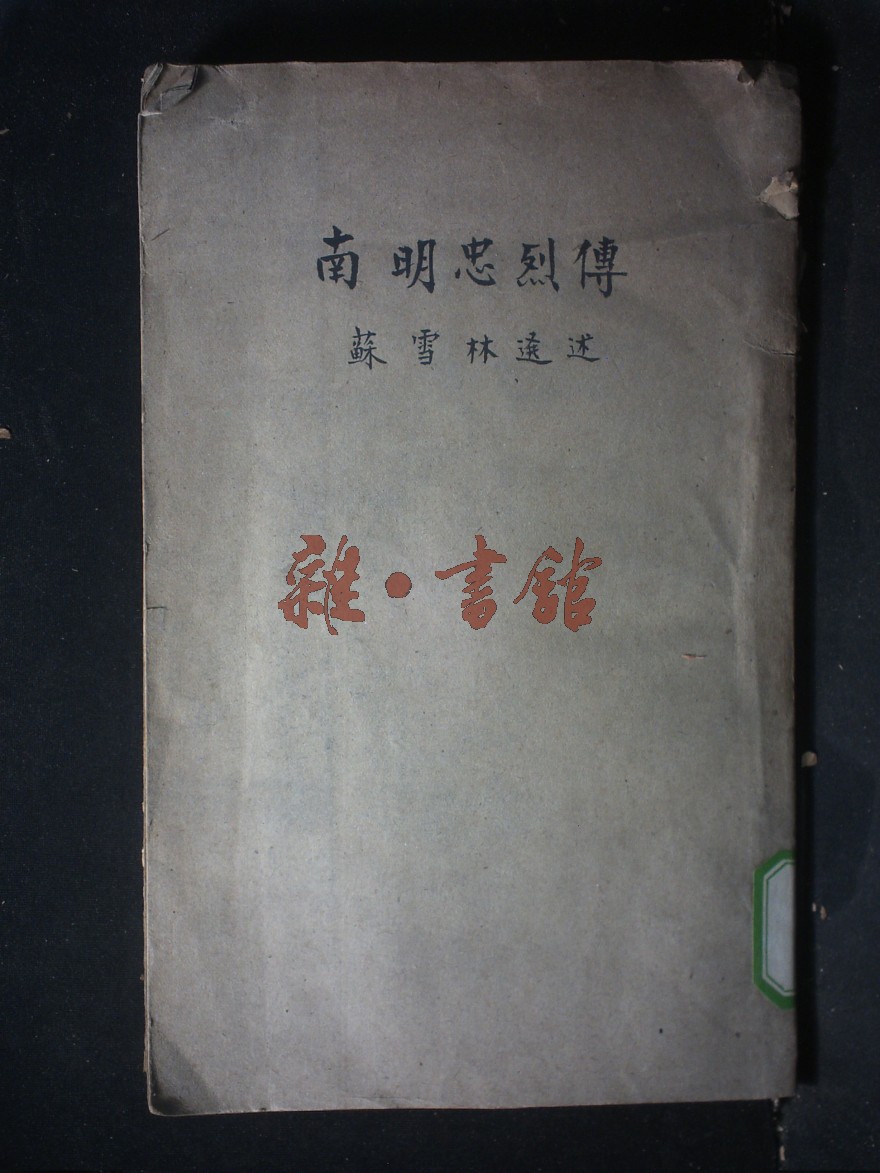 南明忠烈傳
蘇雪林選述
雜·書館